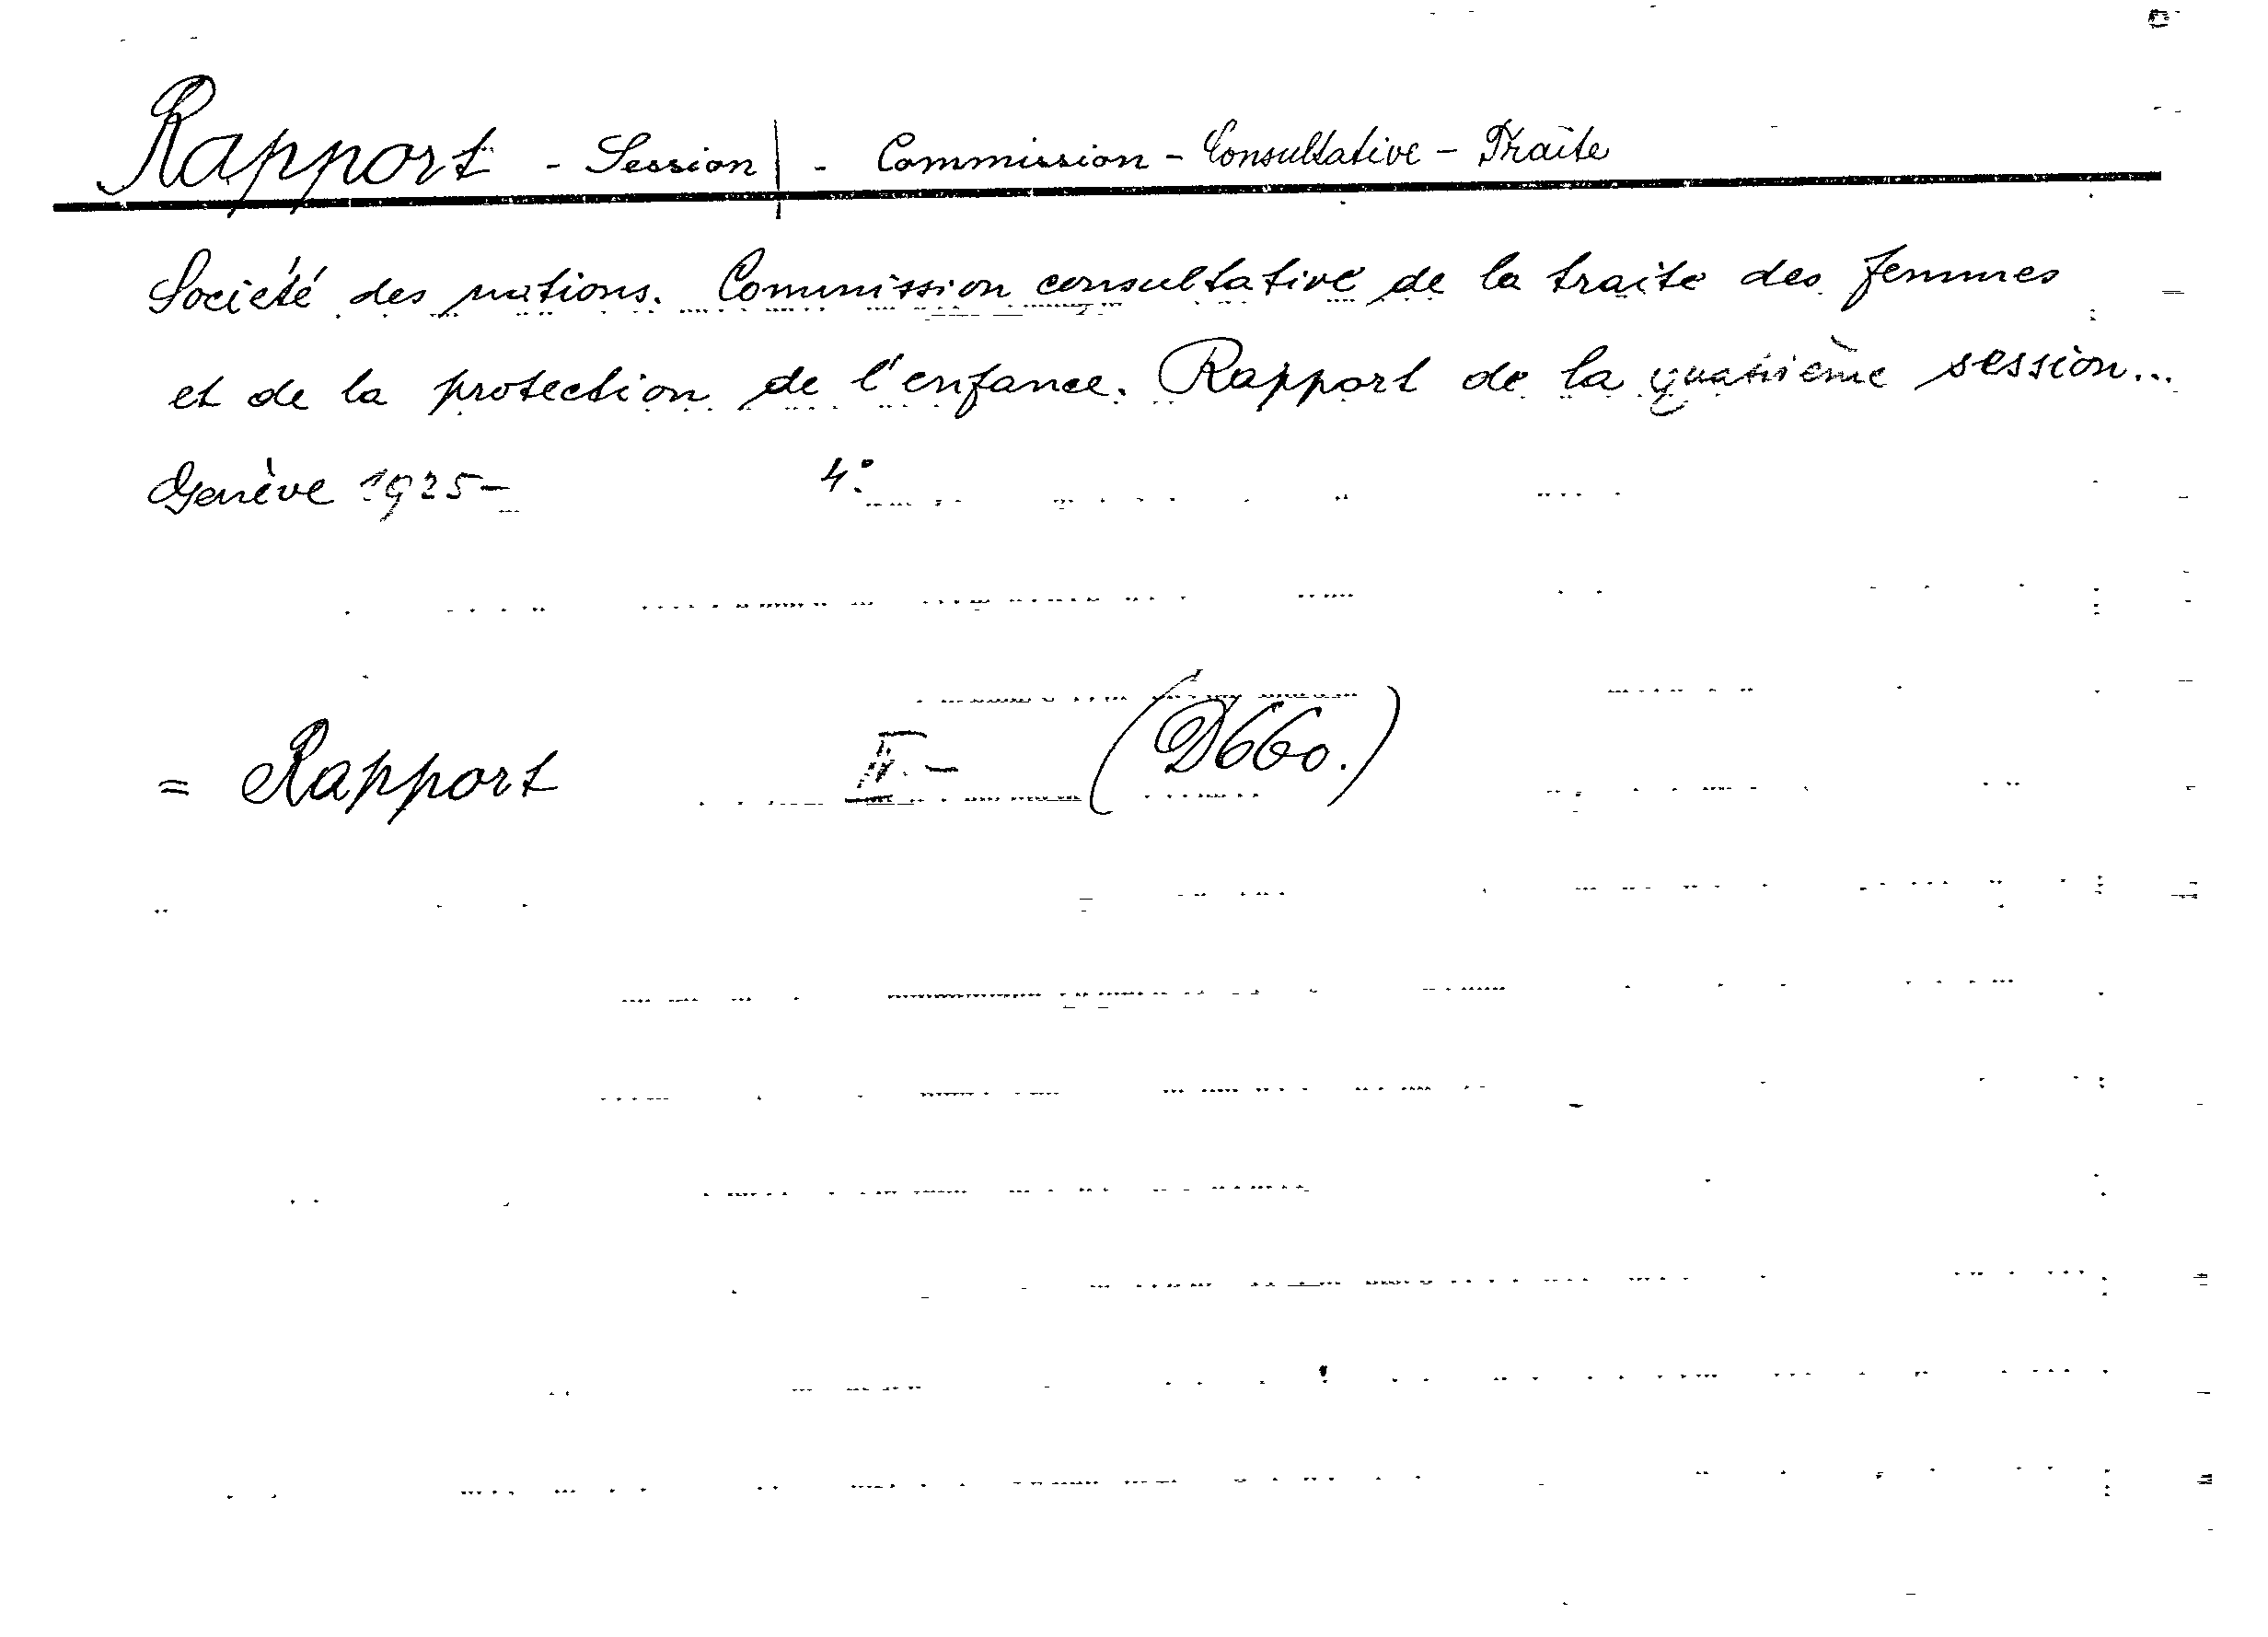 Rapport - Session | - Commission - Consultative - Traite
Société des nations. Commission consultative de la traite des femmes
et de la protection de l'enfance. Rapport de la quatrième session...
Genève 1925- 4°.
= Rapport (D660.)